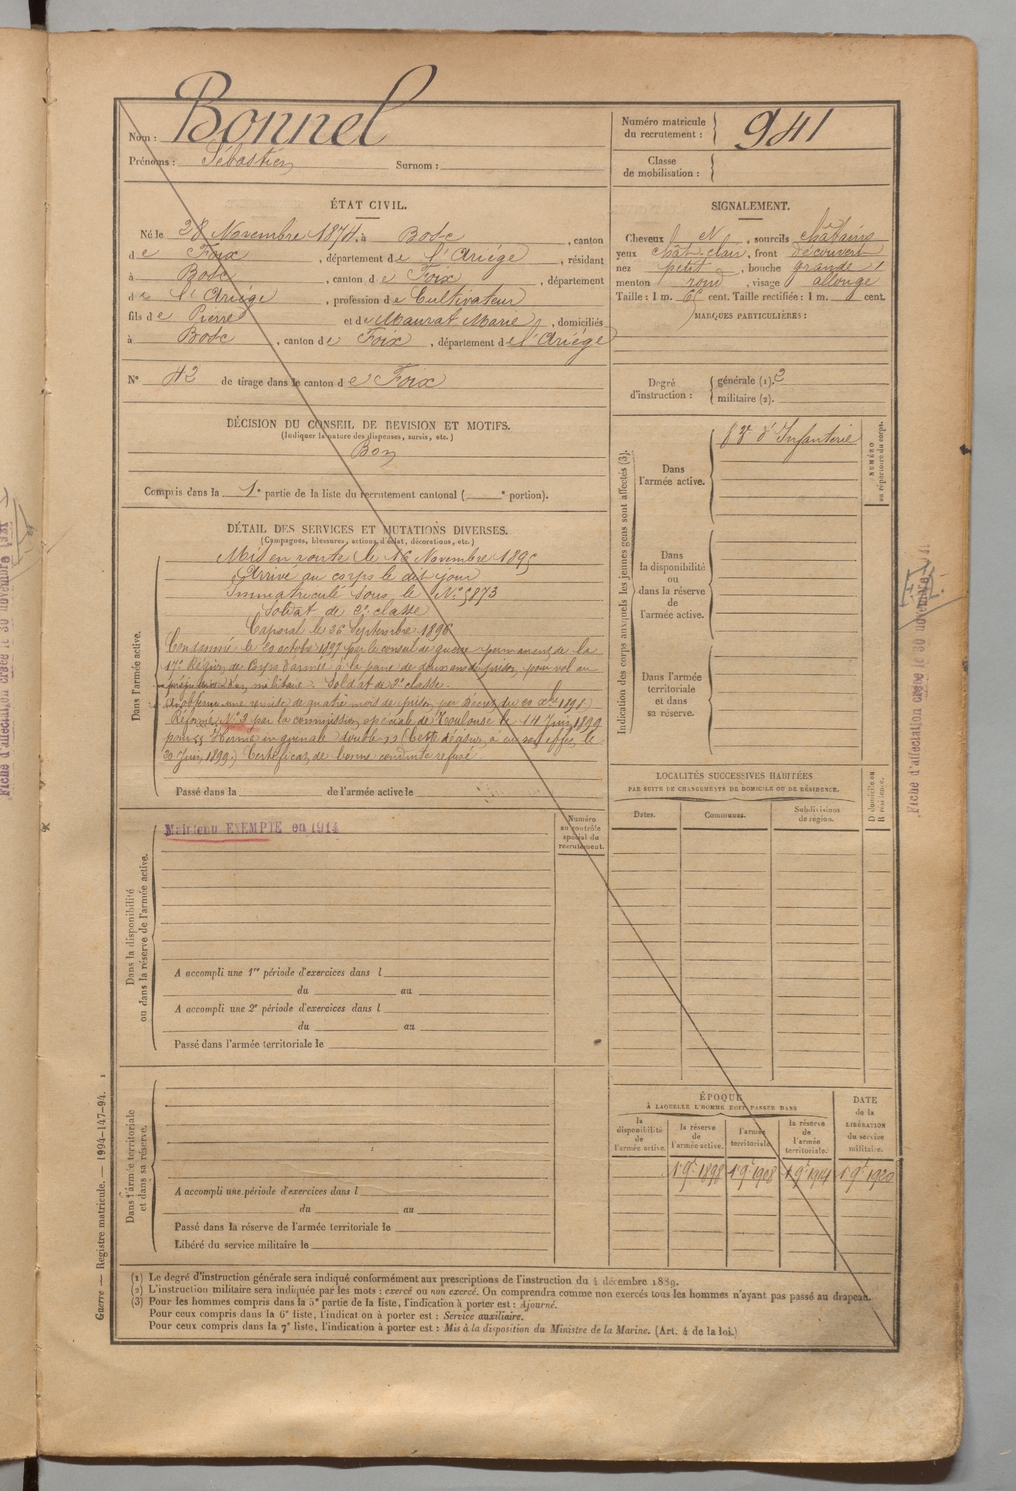 Nom : Bonnel
Prénoms : Sébastien Surnom :
Numéro matricule du recrutement : 941
Classe de mobilisation :
ÉTAT CIVIL.
Né le 28 Novembre 1874, à Bosc, canton
de Foix, département de l'Ariège, résidant
à Bosc, canton de Foix, département
de l'Ariège, profession de Cultivateur
fils de Pierre et de Maurat Marie, domiciliés
à Bosc, canton de Foix, département de l'Ariège
N° 42 de tirage dans le canton de Foix
SIGNALEMENT.
Cheveux N, sourcils châtains
yeux chât. clair, front découvert
nez petit, bouche grande
menton rond, visage allongé
Taille : 1 m. cent. Taille rectifiée : 1 m. cent.
MARQUES PARTICULIÈRES :
Degré d'instruction : générale (1). 2
militaire (2).
DÉCISION DU CONSEIL DE REVISION ET MOTIFS.
(Indiquer la nature des dispenses, sursis, etc.)
Bon
Compris dans la 1e partie de la liste du recrutement cantonal ( e portion).
DÉTAIL DES SERVICES ET MUTATIONS DIVERSES.
(Campagnes, blessures, actions d'éclat, décorations, etc.)
Dans l'armée active.
Mis en route le 16 Novembre 1895
Arrivé au corps le dit jour
Immatriculé sous le N° 5873
Soldat de 2e classe
Caporal le 26 Septembre 1896
Condamné le 20 octobre 1897 par le conseil de guerre permanent de la
17e Région de Corps d'armée à la peine de deux ans de prison, pour vol au
préjudice d'un militaire. Soldat de 2e classe.
A obtenu une remise de quatre mois de prison, par décret du 20 Xbre 1898.
Réformé N° 2 par la commission spéciale de Toulouse le 14 Juin 1899
pour Hernie inguinale double
20 Juin 1899.) Certificat de bonne conduite refusé
Passé dans la de l'armée active le
Indication des corps auxquels les jeunes gens sont affectés (3).
Dans l'armée active.
d'Infanterie
NUMÉRO au répertoire du corps.
Dans la disponibilité ou dans la réserve de l'armée active.
Dans l'armée territoriale et dans sa réserve.
LOCALITÉS SUCCESSIVES HABITÉES
PAR SUITE DE CHANGEMENTS DE DOMICILE OU DE RÉSIDENCE.
Dates. Communes. Subdivisions de région. D domicile ou R résidence.
Dans la disponibilité ou dans la réserve de l'armée active.
Maintenu EXEMPTÉ en 1914
Numéro au contrôle spécial du recrutement.
A accompli une 1re période d'exercices dans l
du au
A accompli une 2e période d'exercices dans l
du au
Passé dans l'armée territoriale le
Dans l'armée territoriale et dans sa réserve.
A accompli une période d'exercices dans l
du au
Passé dans la réserve de l'armée territoriale le
Libéré du service militaire le
ÉPOQUE
À LAQUELLE L'HOMME DOIT PASSER DANS
la disponibilité de l'armée active.
la réserve de l'armée active.
l'armée territoriale.
la réserve de l'armée territoriale.
DATE de la LIBÉRATION du service militaire.
1 9e 1898 1 9e 1908 1 9e 1914 1 9e 1920
(1) Le degré d'instruction générale sera indiqué conformément aux prescriptions de l'instruction du 4 décembre 1889.
(2) L'instruction militaire sera indiquée par les mots : exercé ou non exercé. On comprendra comme non exercés tous les hommes n'ayant pas passé au drapeau.
(3) Pour les hommes compris dans la 5e partie de la liste, l'indication à porter est : Ajourné.
Pour ceux compris dans la 6e liste, l'indication à porter est : Service auxiliaire.
Pour ceux compris dans la 7e liste, l'indication à porter est : Mis à la disposition du Ministre de la Marine. (Art. 4 de la loi.)
Guerre — Registre matricule. — 1994-147-94.
Fiche d'affectation créée le 30 novembre
Fiche d'affectation créée le 30 novembre